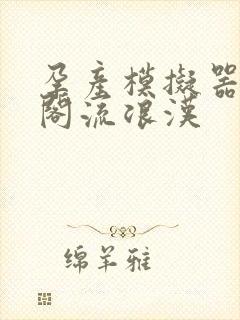 孕產模擬器
閣流浪漢
绵羊雅